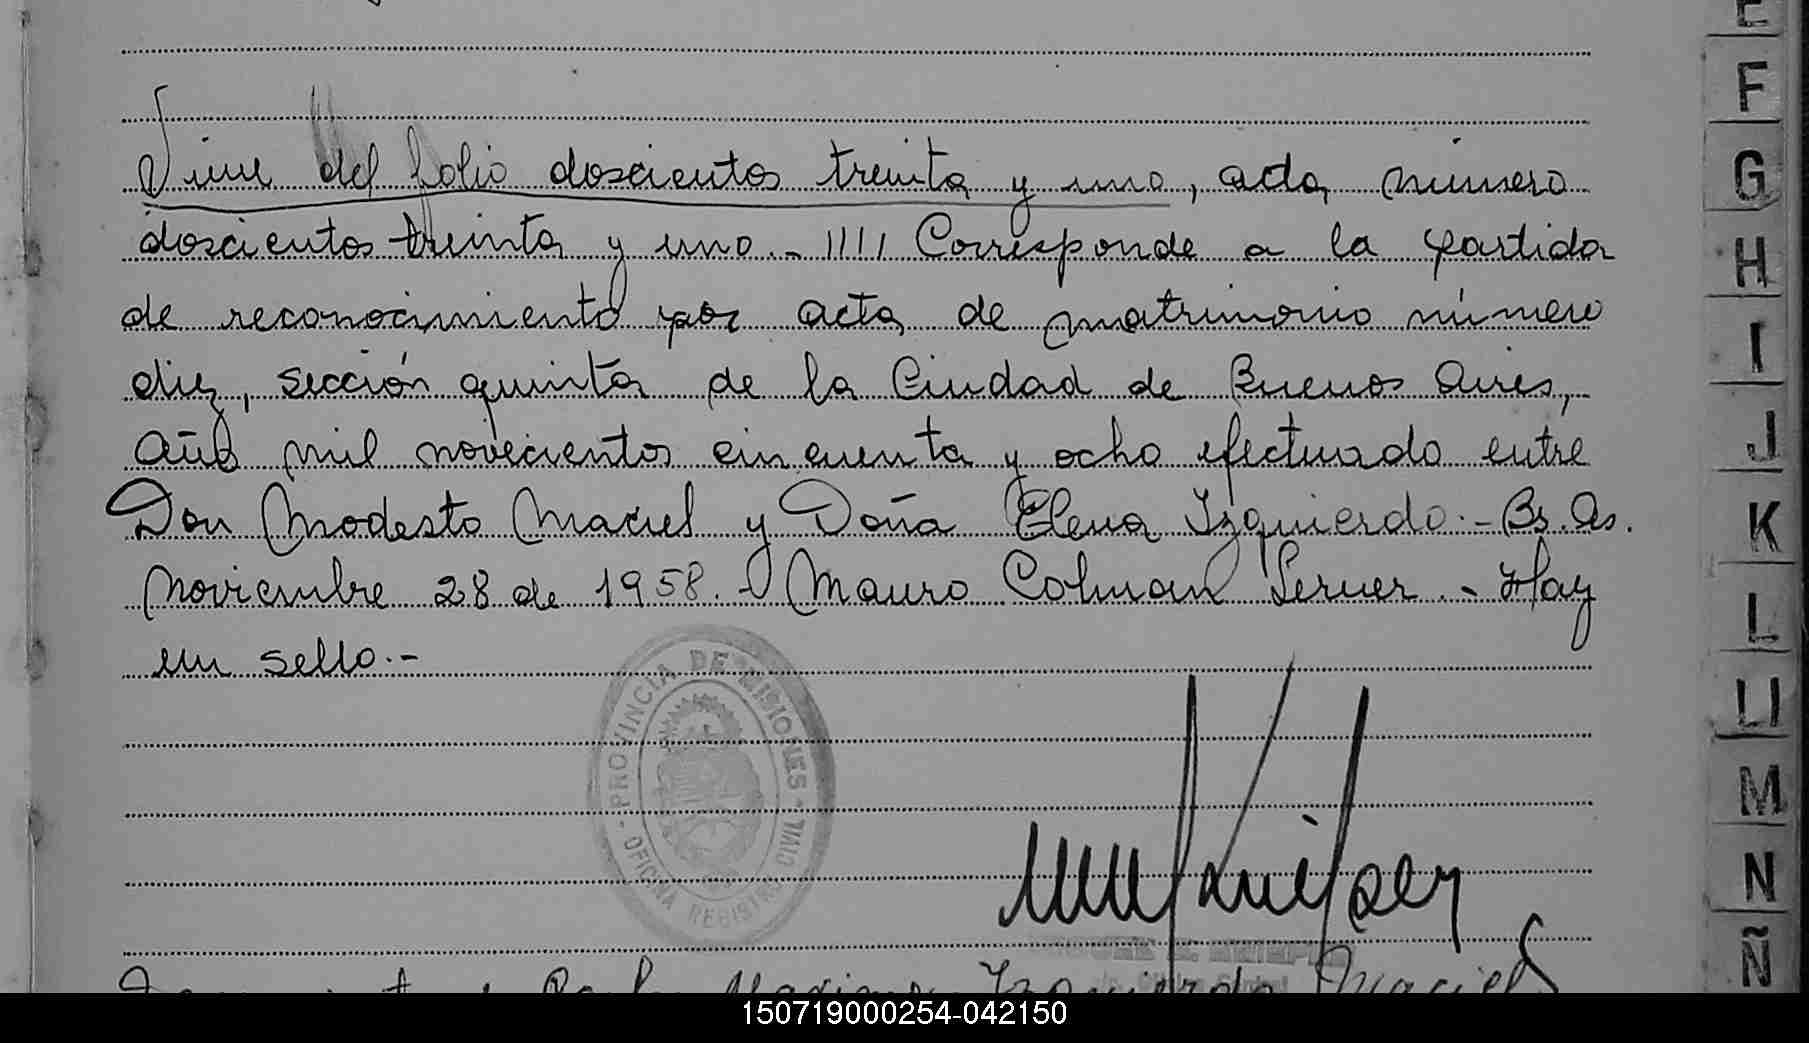 Viene del folio doscientos treinta y uno, acta número
doscientos treinta y uno.- //// Corresponde a la partida
de reconocimiento por acta de matrimonio número
diez, sección quinta de la Ciudad de Buenos Aires,
año mil novecientos cincuenta y ocho efectuado entre
Don Modesto Maciel y Doña Elena Izquierdo.- Bs. As.
Noviembre 28 de 1958.- Mauro Colman Lerner.- Hay
un sello.-
PROVINCIA DE MISIONES - OFICINA REGISTRO CIVIL -
Izquierdo Maciel
E
F
G
H
I
J
K
L
Ll
M
N
Ñ
150719000254-042150